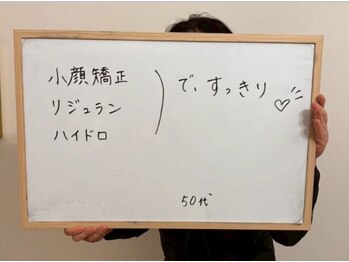 小顔矯正
リジュラン
ハイドロ
で、すっきり♡
50代